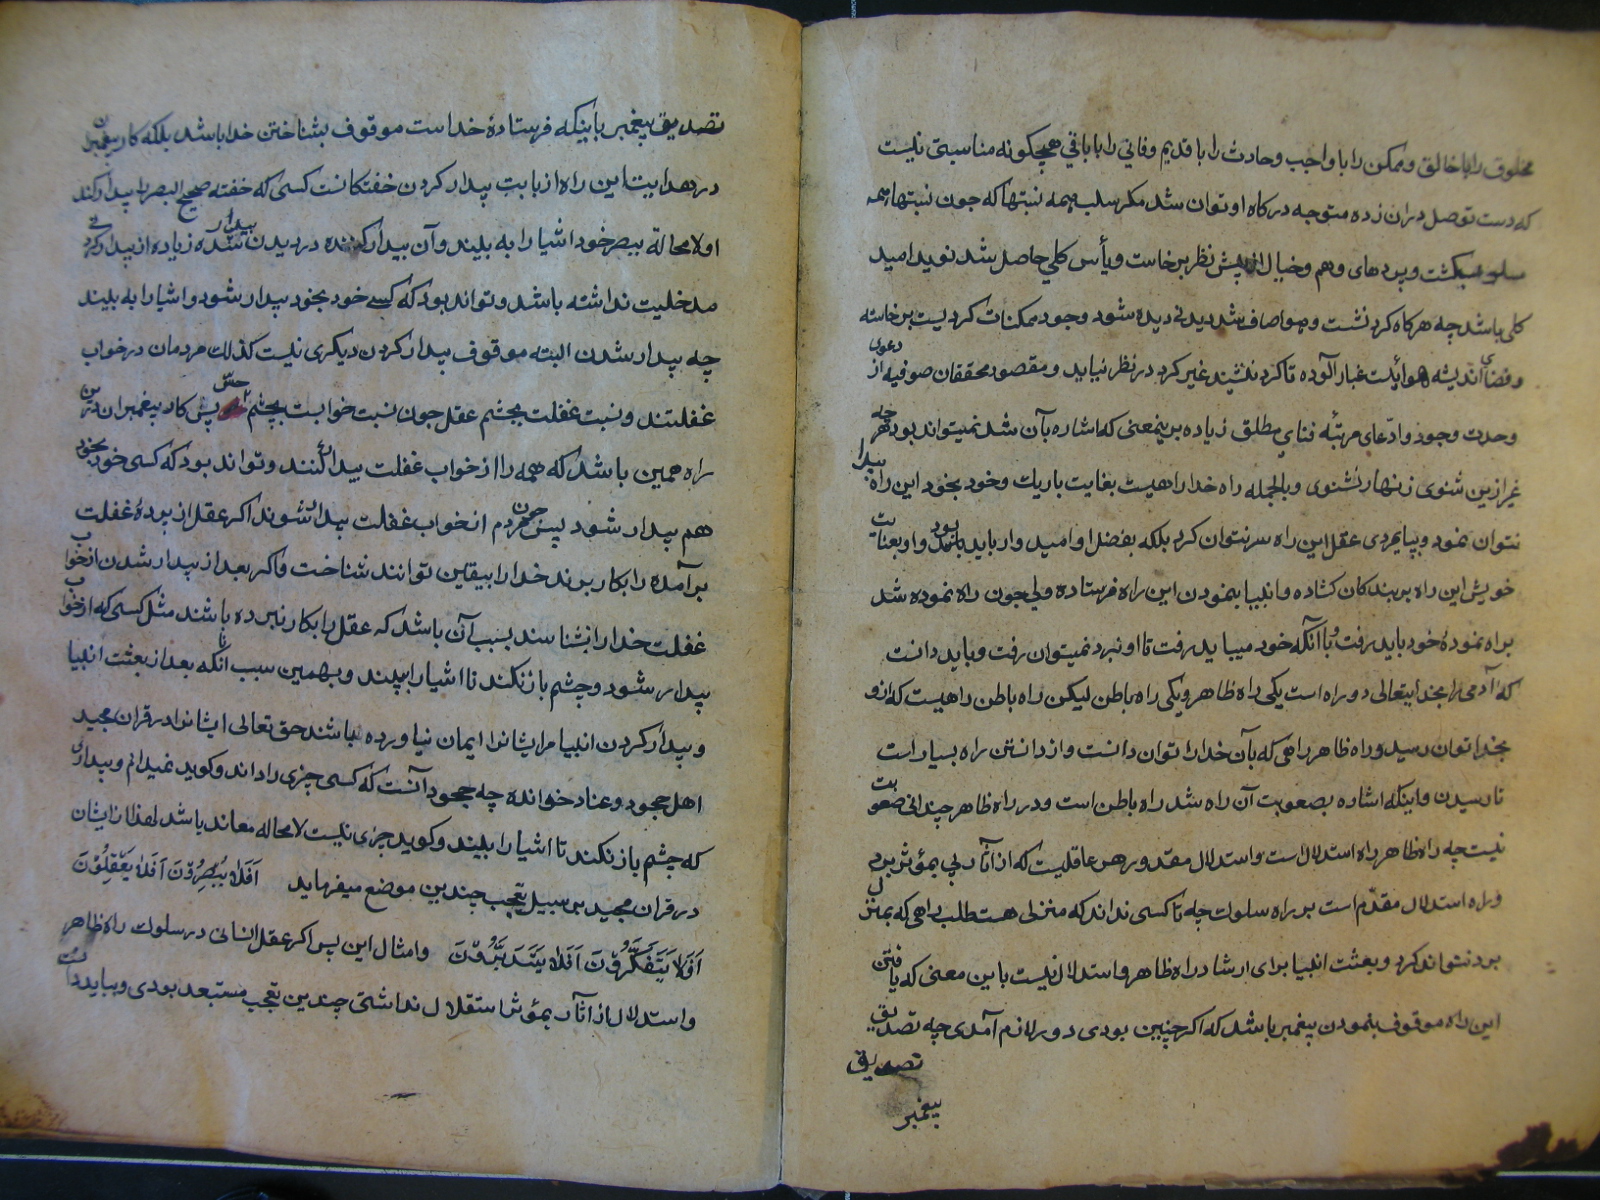 مخلوق را با خالق و ممکن را با واجب و حادث را با قدیم و فانی را با باقی هیچگونه مناسبتی نیست
که دست توصل دران زده متوجه درکاه او توان شد مکر سلب همه نسبتها که چون نسبتها همه
سلب کشت و پردهای وهم و خیال از پیش نظر برخاست و یأس کلی حاصل شد نوید امید
کلی باشد چه هرکاه کرد نشست و هوا صاف شد دیدنی دیده شود وجود ممکنات کردیست برخاسته
و فضای اندیشه هوائیست غبار آلوده تا کرد ننشیند غیر کرد در نظر نیاید و مقصود محققان صوفیه از دعوی
وحدت وجود و ادعای مرتبه فنای مطلق زیاده برینمعنی که اشاره بآن شد نمیتواند بود هر چه
غیر ازین شنوی زنهار نشنوی و بالجمله راه خدا راهیست بغایت باریک و خود بخود این راه پیدا
نتوان نمود و بپایمردی عقل این راه سر نتوان کرد بلکه بفضل او امیدوار باید بود و او بعنایت
خویش این راه بر بندکان کشاده و انبیا بنمودن این راه فرستاده ولی چون راه نموده شد
براه نمودهٔ خود باید رفت و با آنکه خود میباید رفت تا او نبرد نمیتوان رفت و باید دانست
که آدمی را بخدایتعالی دو راه است یکی راه ظاهر و یکی راه باطن لیکن راه باطن راهیست که ازو
بخدا توان رسید و راه ظاهر راهی که بآن خدا را توان دانست و از دانستن راه بسیار است
تا رسیدن و اینکه اشاره بصعوبت آن راه شد راه باطن است و در راه ظاهر چندانی صعوبت
نیست چه راه ظاهر راه استدلال است و استدلال مقدور هر عاقلیست که از اثار پی بمؤثر برد
و راه استدلال مقدّم است بر راه سلوک چه تا کسی نداند که منزلی هست طلب راهی که بمنزل
برد نتواند کرد و بعثت انبیا برای ارشاد راه ظاهر و استدلال نیست باین معنی که یافتن
این راه موقوف بنمودن پیغمبر باشد که اکر چنین بودی دور لازم آمدی چه تصدیق
تصدیق
پیغمبر
تصدیق پیغمبر باینکه فرستادهٔ خداست موقوف بشناختن خدا باشد بلکه کار پیغمبران
در هدایت این راه از بابت بیدار کردن خفتکانست کسی که خفته صحیح البصر را بیدار کند
او لا محالة ببصر خود اشیا را به بیند و آن بیدار کننده در دیدن بیدار شده زیاده از بیدار کردنی
مدخلیت نداشته باشد و تواند بود که کسی خود بخود بیدار شود و اشیا را به بیند
چه بیدار شدن البته موقوف بیدار کردن دیکری نیست کذلک مردمان در خواب
غفلتند و نسبت غفلت بچشم عقل چون نسبت خوابست بچشم حسّ پس کار پیغمبران درین
راه همین باشد که همه را از خواب غفلت بیدار کنند و تواند بود که کسی خود بخود
هم بیدار شود پس چون مردم از خواب غفلت بیدار شوند اکر عقل از پردهٔ غفلت
برآمده را بکار برند خدا را بیقین توانند شناخت و اکر بعد از بیدار شدن از خواب
غفلت خدا را نشناسند بسبب آن باشد که عقل را بکار نبرده باشند مثل کسی که از خواب
بیدار شود و چشم باز نکند تا اشیا را ببیند و بهمین سبب آنانکه بعد از بعثت انبیا
و بیدار کردن انبیا مر ایشانرا ایمان نیاورده باشند حق تعالی ایشانرا در قران مجید
اهل جحود و عناد خوانده چه جحود آنست که کسی چیزی را داند و کوید نمیدانم و بیداری
که چشم باز نکند تا اشیا را ببیند و کوید چیزی نیست لا محاله معاند باشد لهذا ایشان
در قران مجید بر سبیل تعجب چندین موضع میفرماید اَفَلا یُبْصِرُوْنَ اَفَلا یَعْقِلُوْنَ
اَفَلا یَتَفَکَّرُوْنَ اَفَلا یَتَدَبَّرُوْنَ و امثال این پس اکر عقل انسانی در سلوک راه ظاهر
و استدلال از اثار بمؤثر استقلال نداشتی چندین تعجب مستبعد بودی و بباید دانست